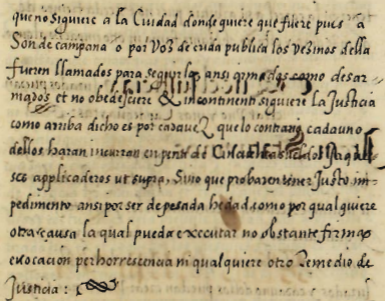 que no siguiere a la Ciudad donde quiere que fuere pues a
Son de campana o por Voz de cuda publica los vezinos della
fueren llamados para seguir los ansi armados como desar
mados et no obedesciere & incontinent siguiere la Justicia
como arriba dicho es por cada vez que lo contrario cada uno
dellos haran incurran en pena de Cincuenta sueldos
applicaderos ut supra, Sino que probaren tener Justo im
pedimento ansi por ser de pesada hedad como por qualquiere
otra causa la qual pueda executar no obstante firma
evocacion perhorrescencia ni qualquiere otro Remedio de
Justicia: